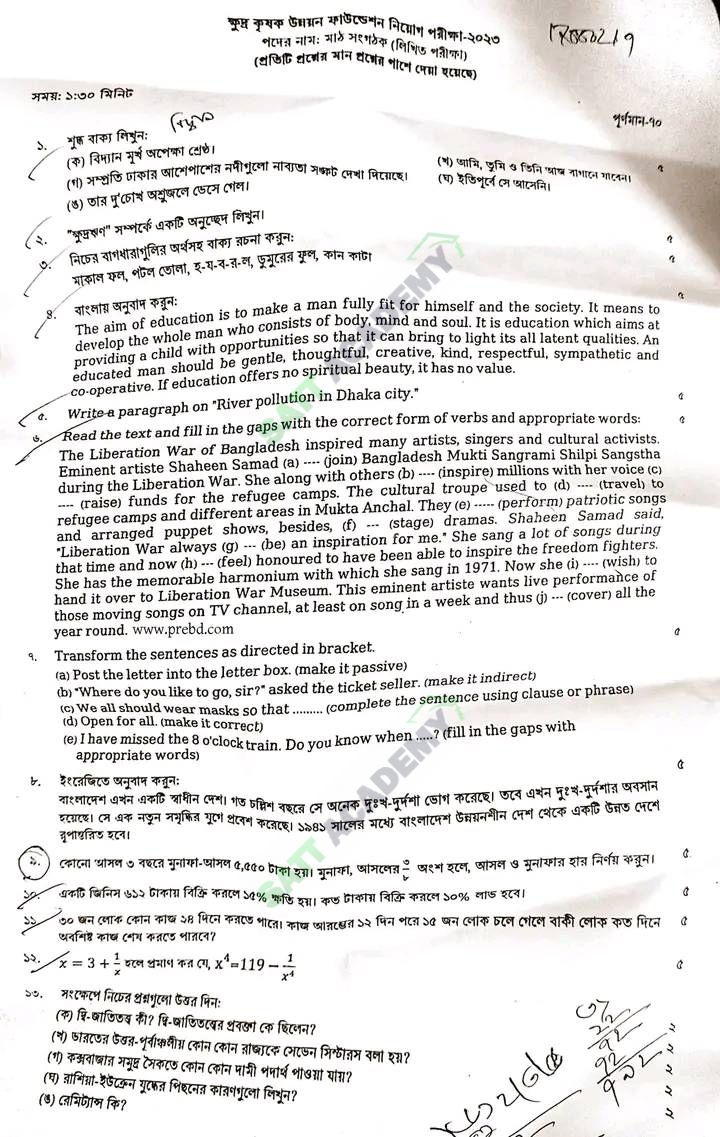 ক্ষুদ্র কৃষক উন্নয়ন ফাউন্ডেশন নিয়োগ পরীক্ষা-২০২৩
পদের নাম: মাঠ সংগঠক (লিখিত পরীক্ষা)
(প্রতিটি প্রশ্নের মান প্রশ্নের পাশে দেয়া হয়েছে)
সময়: ১:৩০ মিনিট
পূর্ণমান-৭০
১. শুদ্ধ বাক্য লিখুন:
(ক) বিদ্যান মূর্খ অপেক্ষা শ্রেষ্ঠ। (খ) আমি, তুমি ও তিনি আজ বাগানে যাবেন। ৫
(গ) সম্প্রতি ঢাকার আশেপাশের নদীগুলো নাব্যতা সঙ্কট দেখা দিয়েছে। (ঘ) ইতিপূর্বে সে আসেনি।
(ঙ) তার দু'চোখ অশ্রুজলে ভেসে গেল।
২. "ক্ষুদ্রঋণ" সম্পর্কে একটি অনুচ্ছেদ লিখুন। ৫
৩. নিচের বাগধারাগুলির অর্থসহ বাক্য রচনা করুন: ৫
মাকাল ফল, পটল তোলা, হ-য-ব-র-ল, ডুমুরের ফুল, কান কাটা
৪. বাংলায় অনুবাদ করুন: ৫
The aim of education is to make a man fully fit for himself and the society. It means to
develop the whole man who consists of body, mind and soul. It is education which aims at
providing a child with opportunities so that it can bring to light its all latent qualities. An
educated man should be gentle, thoughtful, creative, kind, respectful, sympathetic and
co-operative. If education offers no spiritual beauty, it has no value.
৫. Write a paragraph on "River pollution in Dhaka city." ৫
৬. Read the text and fill in the gaps with the correct form of verbs and appropriate words: ৫
The Liberation War of Bangladesh inspired many artists, singers and cultural activists.
Eminent artiste Shaheen Samad (a) ---- (join) Bangladesh Mukti Sangrami Shilpi Sangstha
during the Liberation War. She along with others (b) ---- (inspire) millions with her voice (c)
---- (raise) funds for the refugee camps. The cultural troupe used to (d) ---- (travel) to
refugee camps and different areas in Mukta Anchal. They (e) ----- (perform) patriotic songs
and arranged puppet shows, besides, (f) --- (stage) dramas. Shaheen Samad said,
"Liberation War always (g) --- (be) an inspiration for me." She sang a lot of songs during
that time and now (h) --- (feel) honoured to have been able to inspire the freedom fighters.
She has the memorable harmonium with which she sang in 1971. Now she (i) ---- (wish) to
hand it over to Liberation War Museum. This eminent artiste wants live performance of
those moving songs on TV channel, at least on song in a week and thus (j) --- (cover) all the
year round. www.prebd.com
৭. Transform the sentences as directed in bracket. ৫
(a) Post the letter into the letter box. (make it passive)
(b) "Where do you like to go, sir?" asked the ticket seller. (make it indirect)
(c) We all should wear masks so that ......... (complete the sentence using clause or phrase)
(d) Open for all. (make it correct)
(e) I have missed the 8 o'clock train. Do you know when .....? (fill in the gaps with
appropriate words)
৮. ইংরেজিতে অনুবাদ করুন: ৫
বাংলাদেশ এখন একটি স্বাধীন দেশ। গত চল্লিশ বছরে সে অনেক দুঃখ-দুর্দশা ভোগ করেছে। তবে এখন দুঃখ-দুর্দশার অবসান
হয়েছে। সে এক নতুন সমৃদ্ধির যুগে প্রবেশ করেছে। ১৯৪১ সালের মধ্যে বাংলাদেশ উন্নয়নশীন দেশ থেকে একটি উন্নত দেশে
রূপান্তরিত হবে।
৯. কোনো আসল ৩ বছরে মুনাফা-আসল ৫,৫৫০ টাকা হয়। মুনাফা, আসলের ৩/৮ অংশ হলে, আসল ও মুনাফার হার নির্ণয় করুন। ৫
১০. একটি জিনিস ৬১২ টাকায় বিক্রি করলে ১৫% ক্ষতি হয়। কত টাকায় বিক্রি করলে ১০% লাভ হবে। ৫
১১. ৩০ জন লোক কোন কাজ ২৪ দিনে করতে পারে। কাজ আরম্ভের ১২ দিন পরে ১৫ জন লোক চলে গেলে বাকী লোক কত দিনে ৫
অবশিষ্ট কাজ শেষ করতে পারবে?
১২. x = 3 + 1/x হলে প্রমাণ কর যে, x⁴=119 − 1/x⁴ ৫
১৩. সংক্ষেপে নিচের প্রশ্নগুলো উত্তর দিন:
(ক) দ্বি-জাতিতত্ত্ব কী? দ্বি-জাতিতত্ত্বের প্রবক্তা কে ছিলেন?
(খ) ভারতের উত্তর-পূর্বাঞ্চলীয় কোন কোন রাজ্যকে সেভেন সিস্টারস বলা হয়?
(গ) কক্সবাজার সমুদ্র সৈকতে কোন কোন দামী পদার্থ পাওয়া যায়?
(ঘ) রাশিয়া-ইউক্রেন যুদ্ধের পিছনের কারণগুলো লিখুন?
(ঙ) রেমিট্যান্স কি?
SATT ACADEMY
SATT ACADEMY